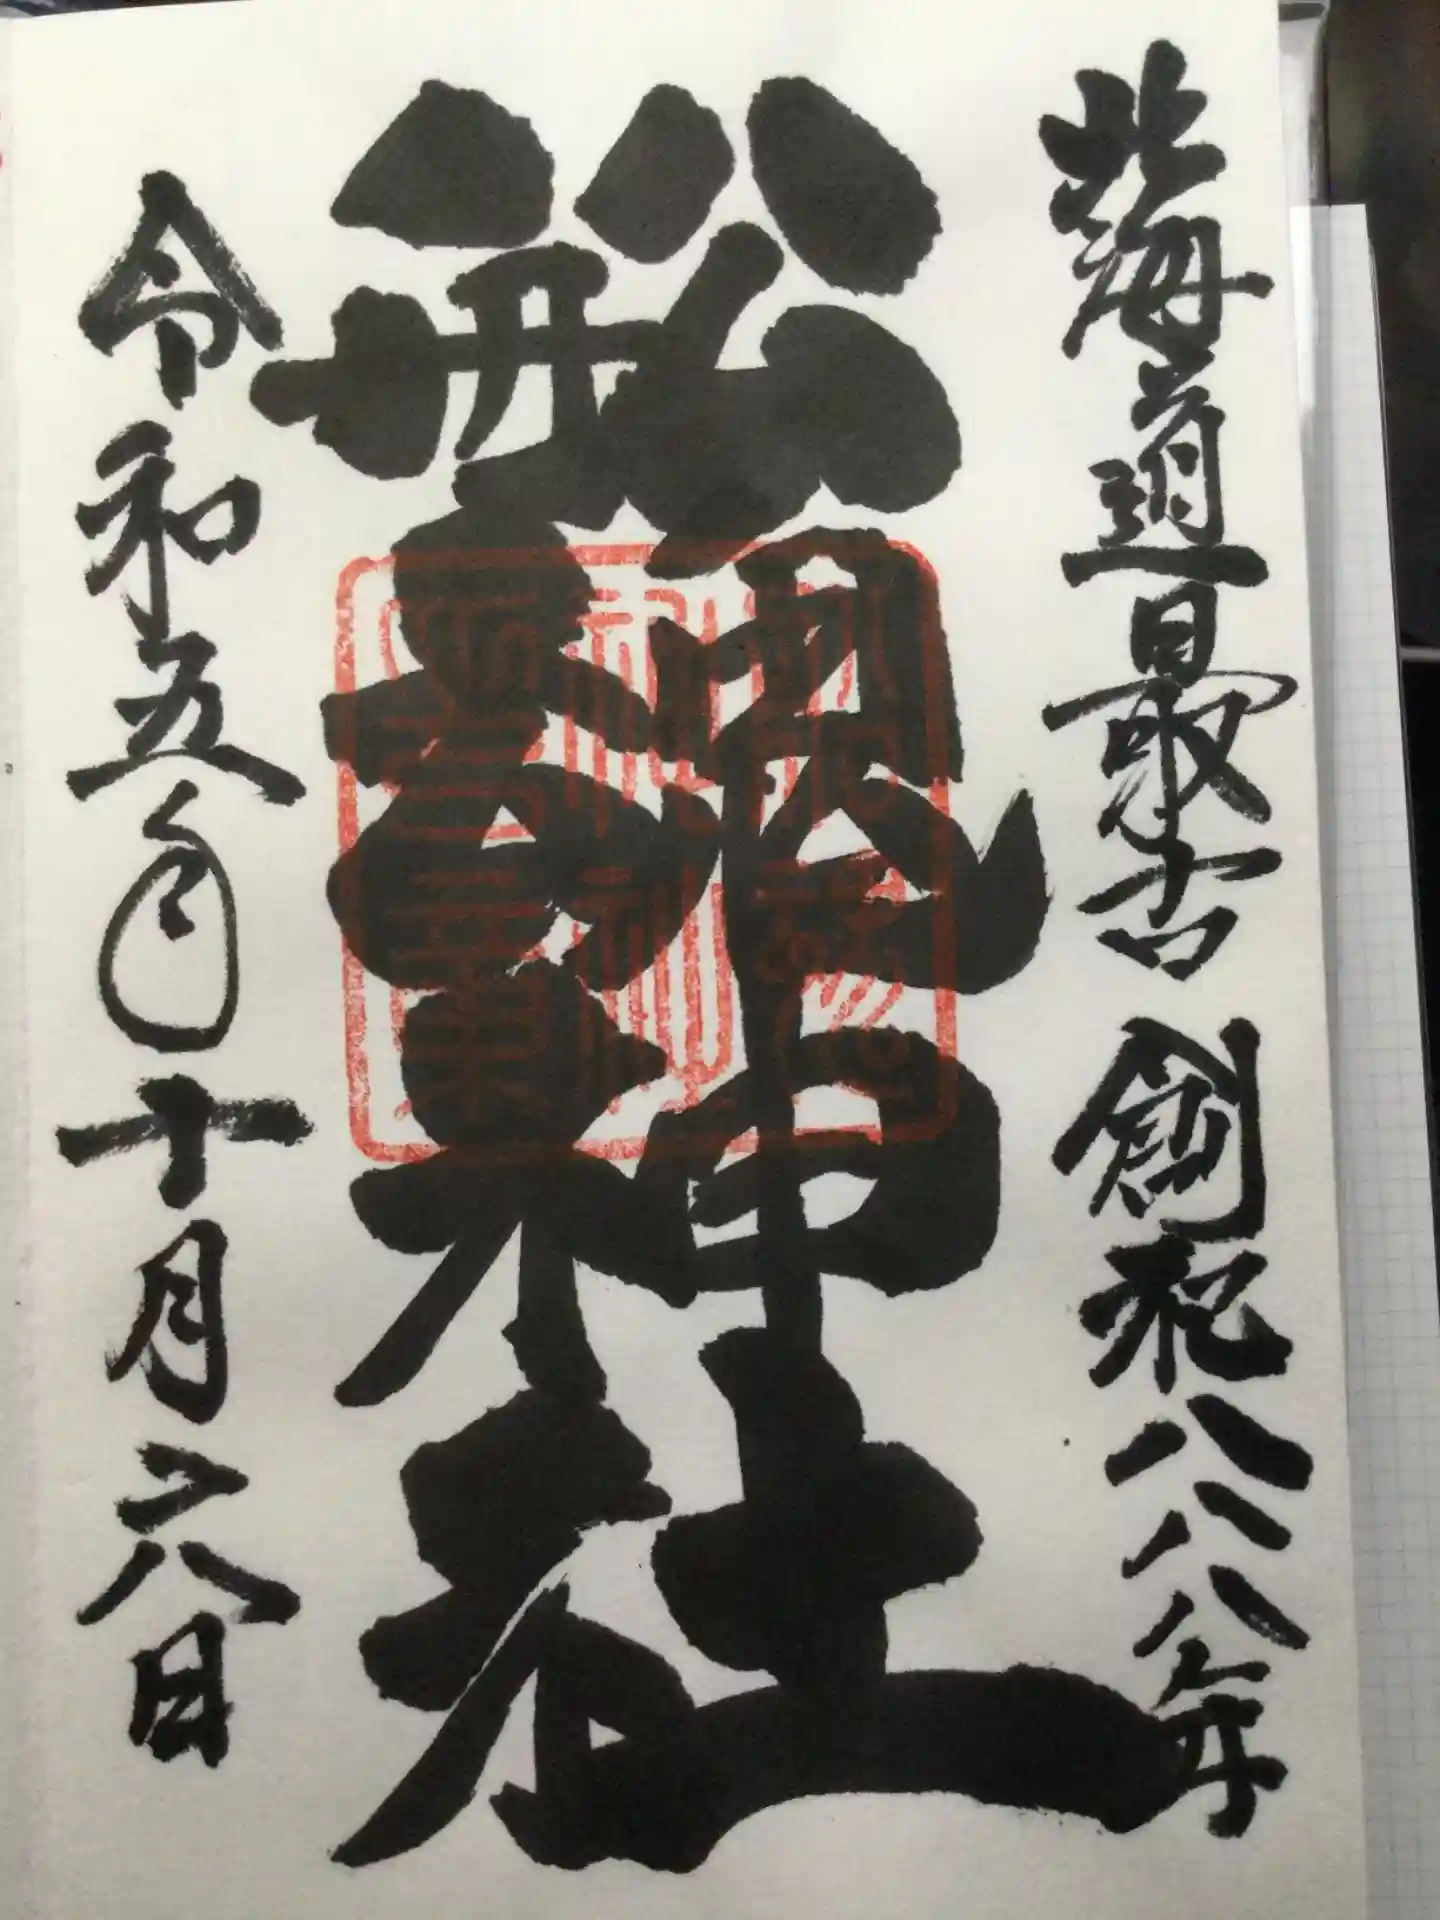 北海道最古 創祀八八八年
船魂神社
令和五年十月二八日